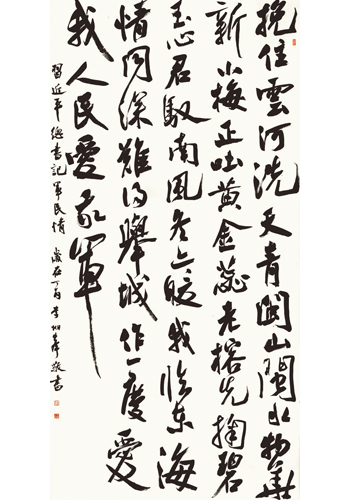 挽住雲河洗天青閩山閩水物華
新小梅正吐黄金蕊老榕先掬碧
玉心君馭南風冬亦暖我臨東海
情同深難得舉城作一慶愛
我人民愛我軍
習近平總書記軍民情 歲在丁酉 李 敬書